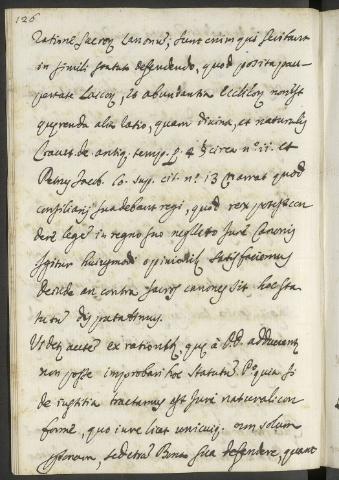 126
ratione sacror. Canonu; sunt enim qui
in simili statuto defendendo, quod posita pau-
pertate Laicor, et abundantia Ecclesior. non est
querenda alia ratio, quam divina, et naturalis
Cravet. de antiq. temp. p. 4 § circa n.º ii. et
Petrus Jacob. sup. cit. n.º 13 narrat quod
consiliarij suadebant regi, quod rex potest con
dere lege in regno suo neglecto Jure Canonis
Igitur huiusmodi opinionib. satisfaciemus
deinde an contra sacros canones sit hoc sta
tutu disputabimus.
Videt autè ex rationib. que à DD. adducunt
non posse improbari hoc statutu. P.º quia si
de iustitia tractamus est Juri naturali con
forme, quo iure licet unicuiq. non solum
sed etia Bona sua defendere, quare